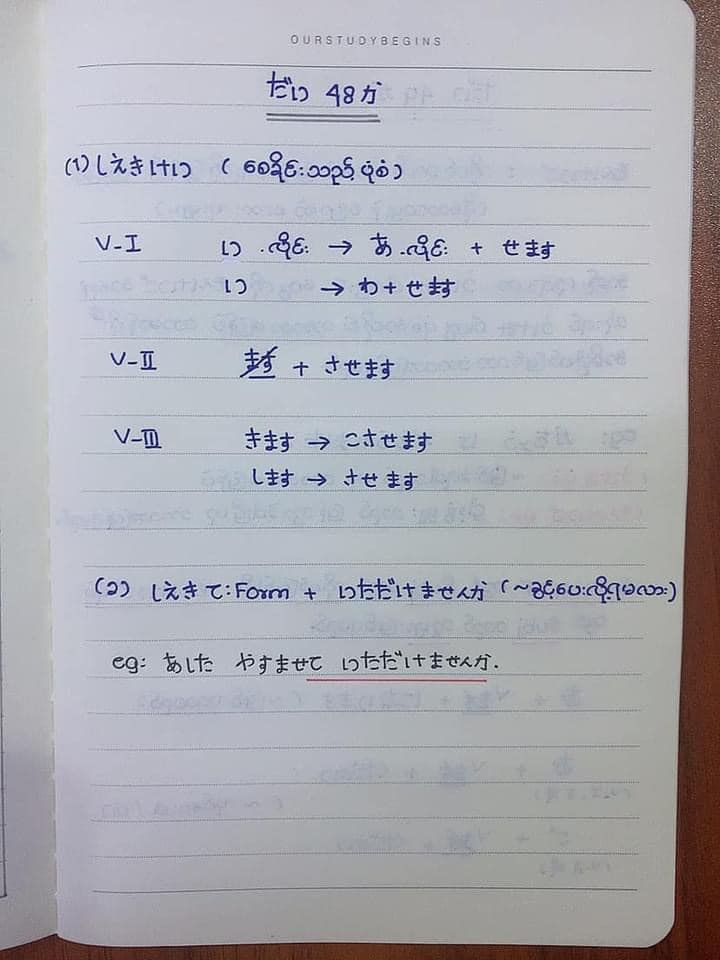 OURSTUDYBEGINS
だい 48 か
(1) しえきけい ( စေခိုင်းသည့်ပုံစံ )
V-I い .လိုင်း → あ .လိုင်း + せます
い → わ + せます
V-II ます + させます
V-III きます → こさせます
します → させます
(၁) しえき て:Form + いただけませんか (~ခွင့်ပေးလို့ရမလား)
eg: あした やすませて いただけませんか.